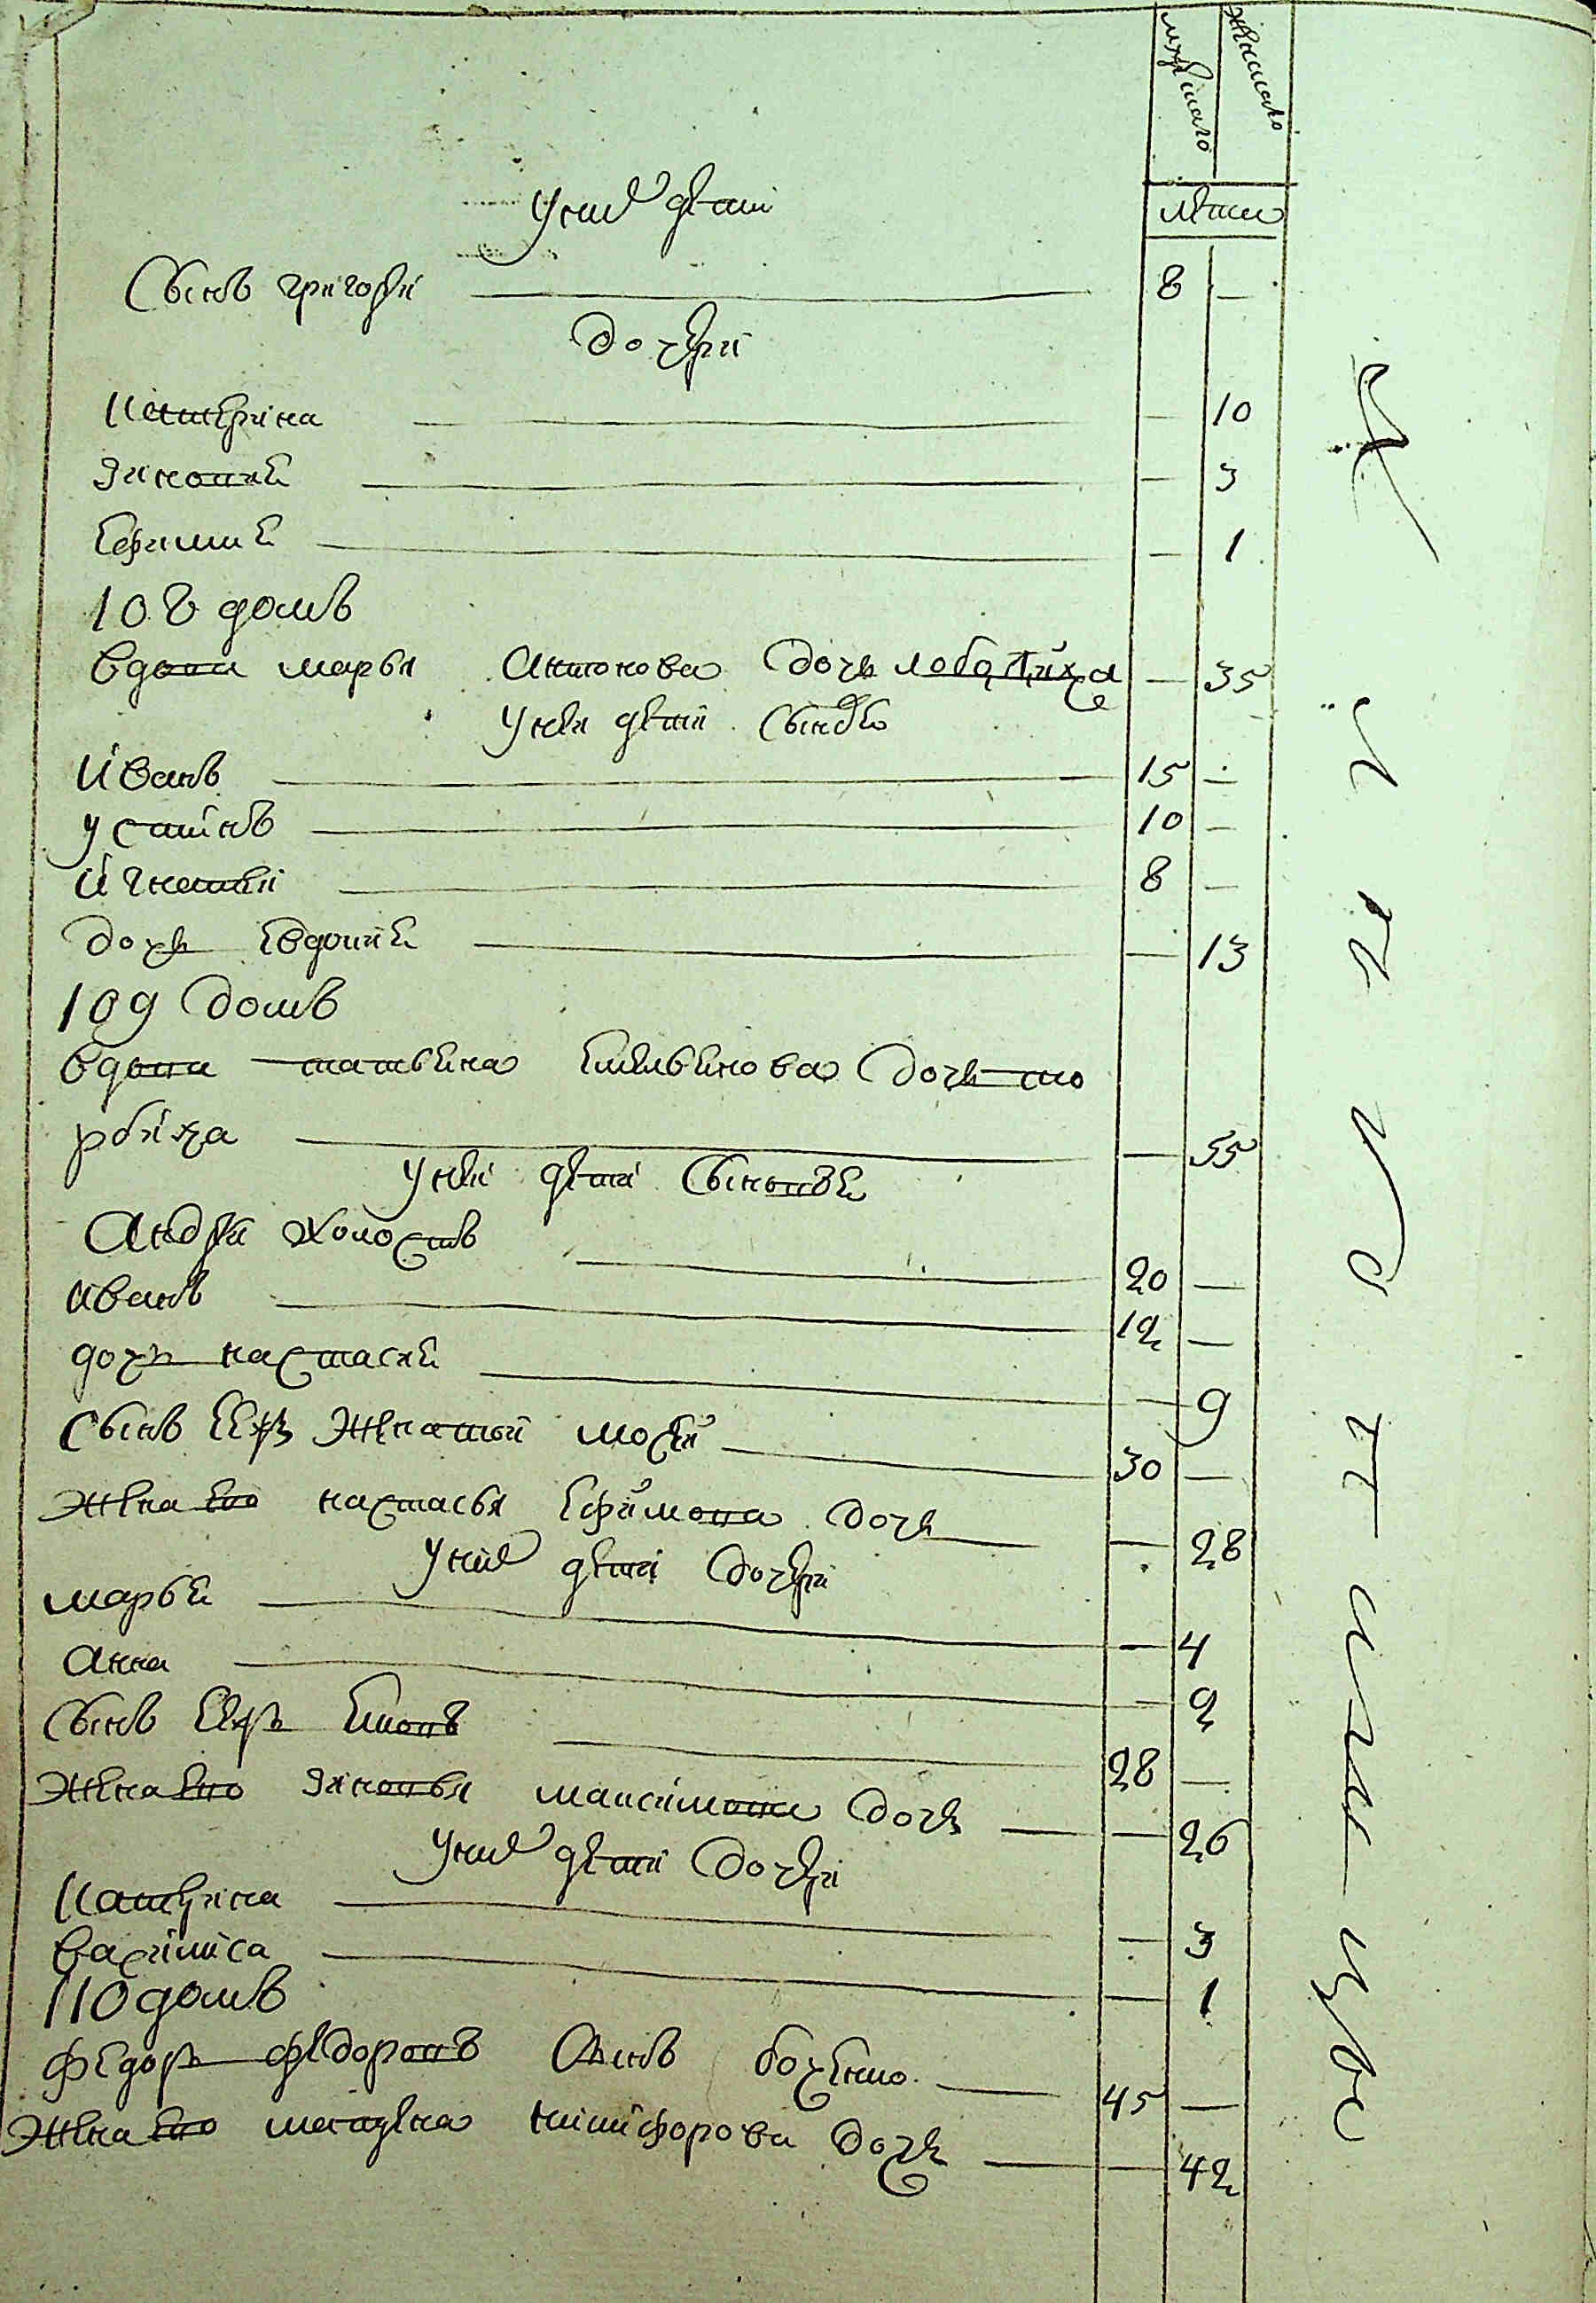 мужеска женска
лета
У них дети
Сынъ григорѣй 8 —
дочери
Катерина — 10
Зиновия — 3
Ефимия — 1
108 домъ
вдова марья Антонова дочь лободиха — 35
У неи дети сынове
Иванъ 15 —
Устинъ 10 —
Игнатѣй 8 —
дочь Евдокия — 13
109 домъ
вдова татьяна Емельянова дочь
рбиха — 55
У неи дети сыновья
Андрей холостъ 20 —
Иванъ 12 —
дочь настасия — 9
Сынъ Еяжъ женатой мосей 30 —
жена ево настасья Ефимова дочь — 28
У них дети дочери
марья — 4
Анна — 2
Сынъ Еяжъ 28 —
жена ево зиновья максимова дочь — 26
У них дети дочери
Катерина — 3
Василиса — 1
110 домъ
Федоръ Федоровъ сынъ 45 —
жена ево никифорова дочь — 42